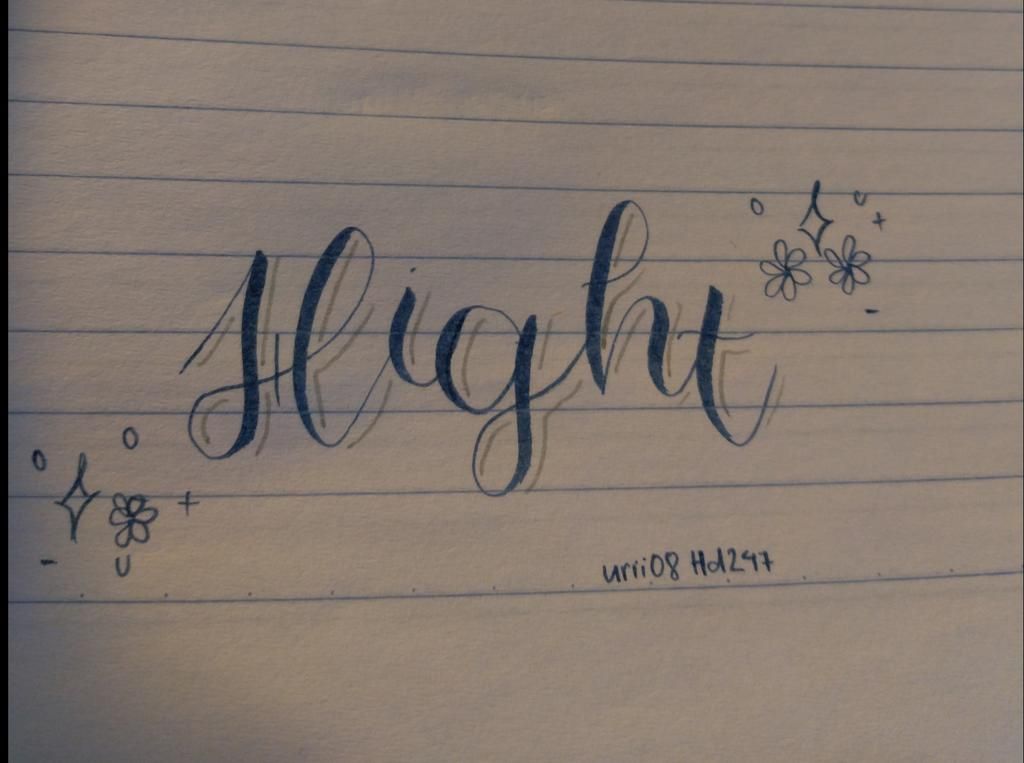 Hight
urri08 Hd247